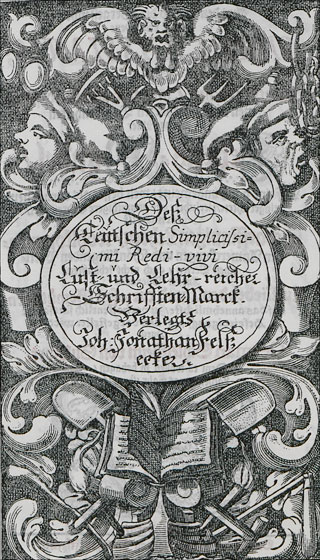 Deß
Teutschen Simplicissi-
mi Redi-vivi
Lust- und Lehr-reicher
Schrifften Marck.
Verlegts
Joh. Jonathan Felß
ecker.